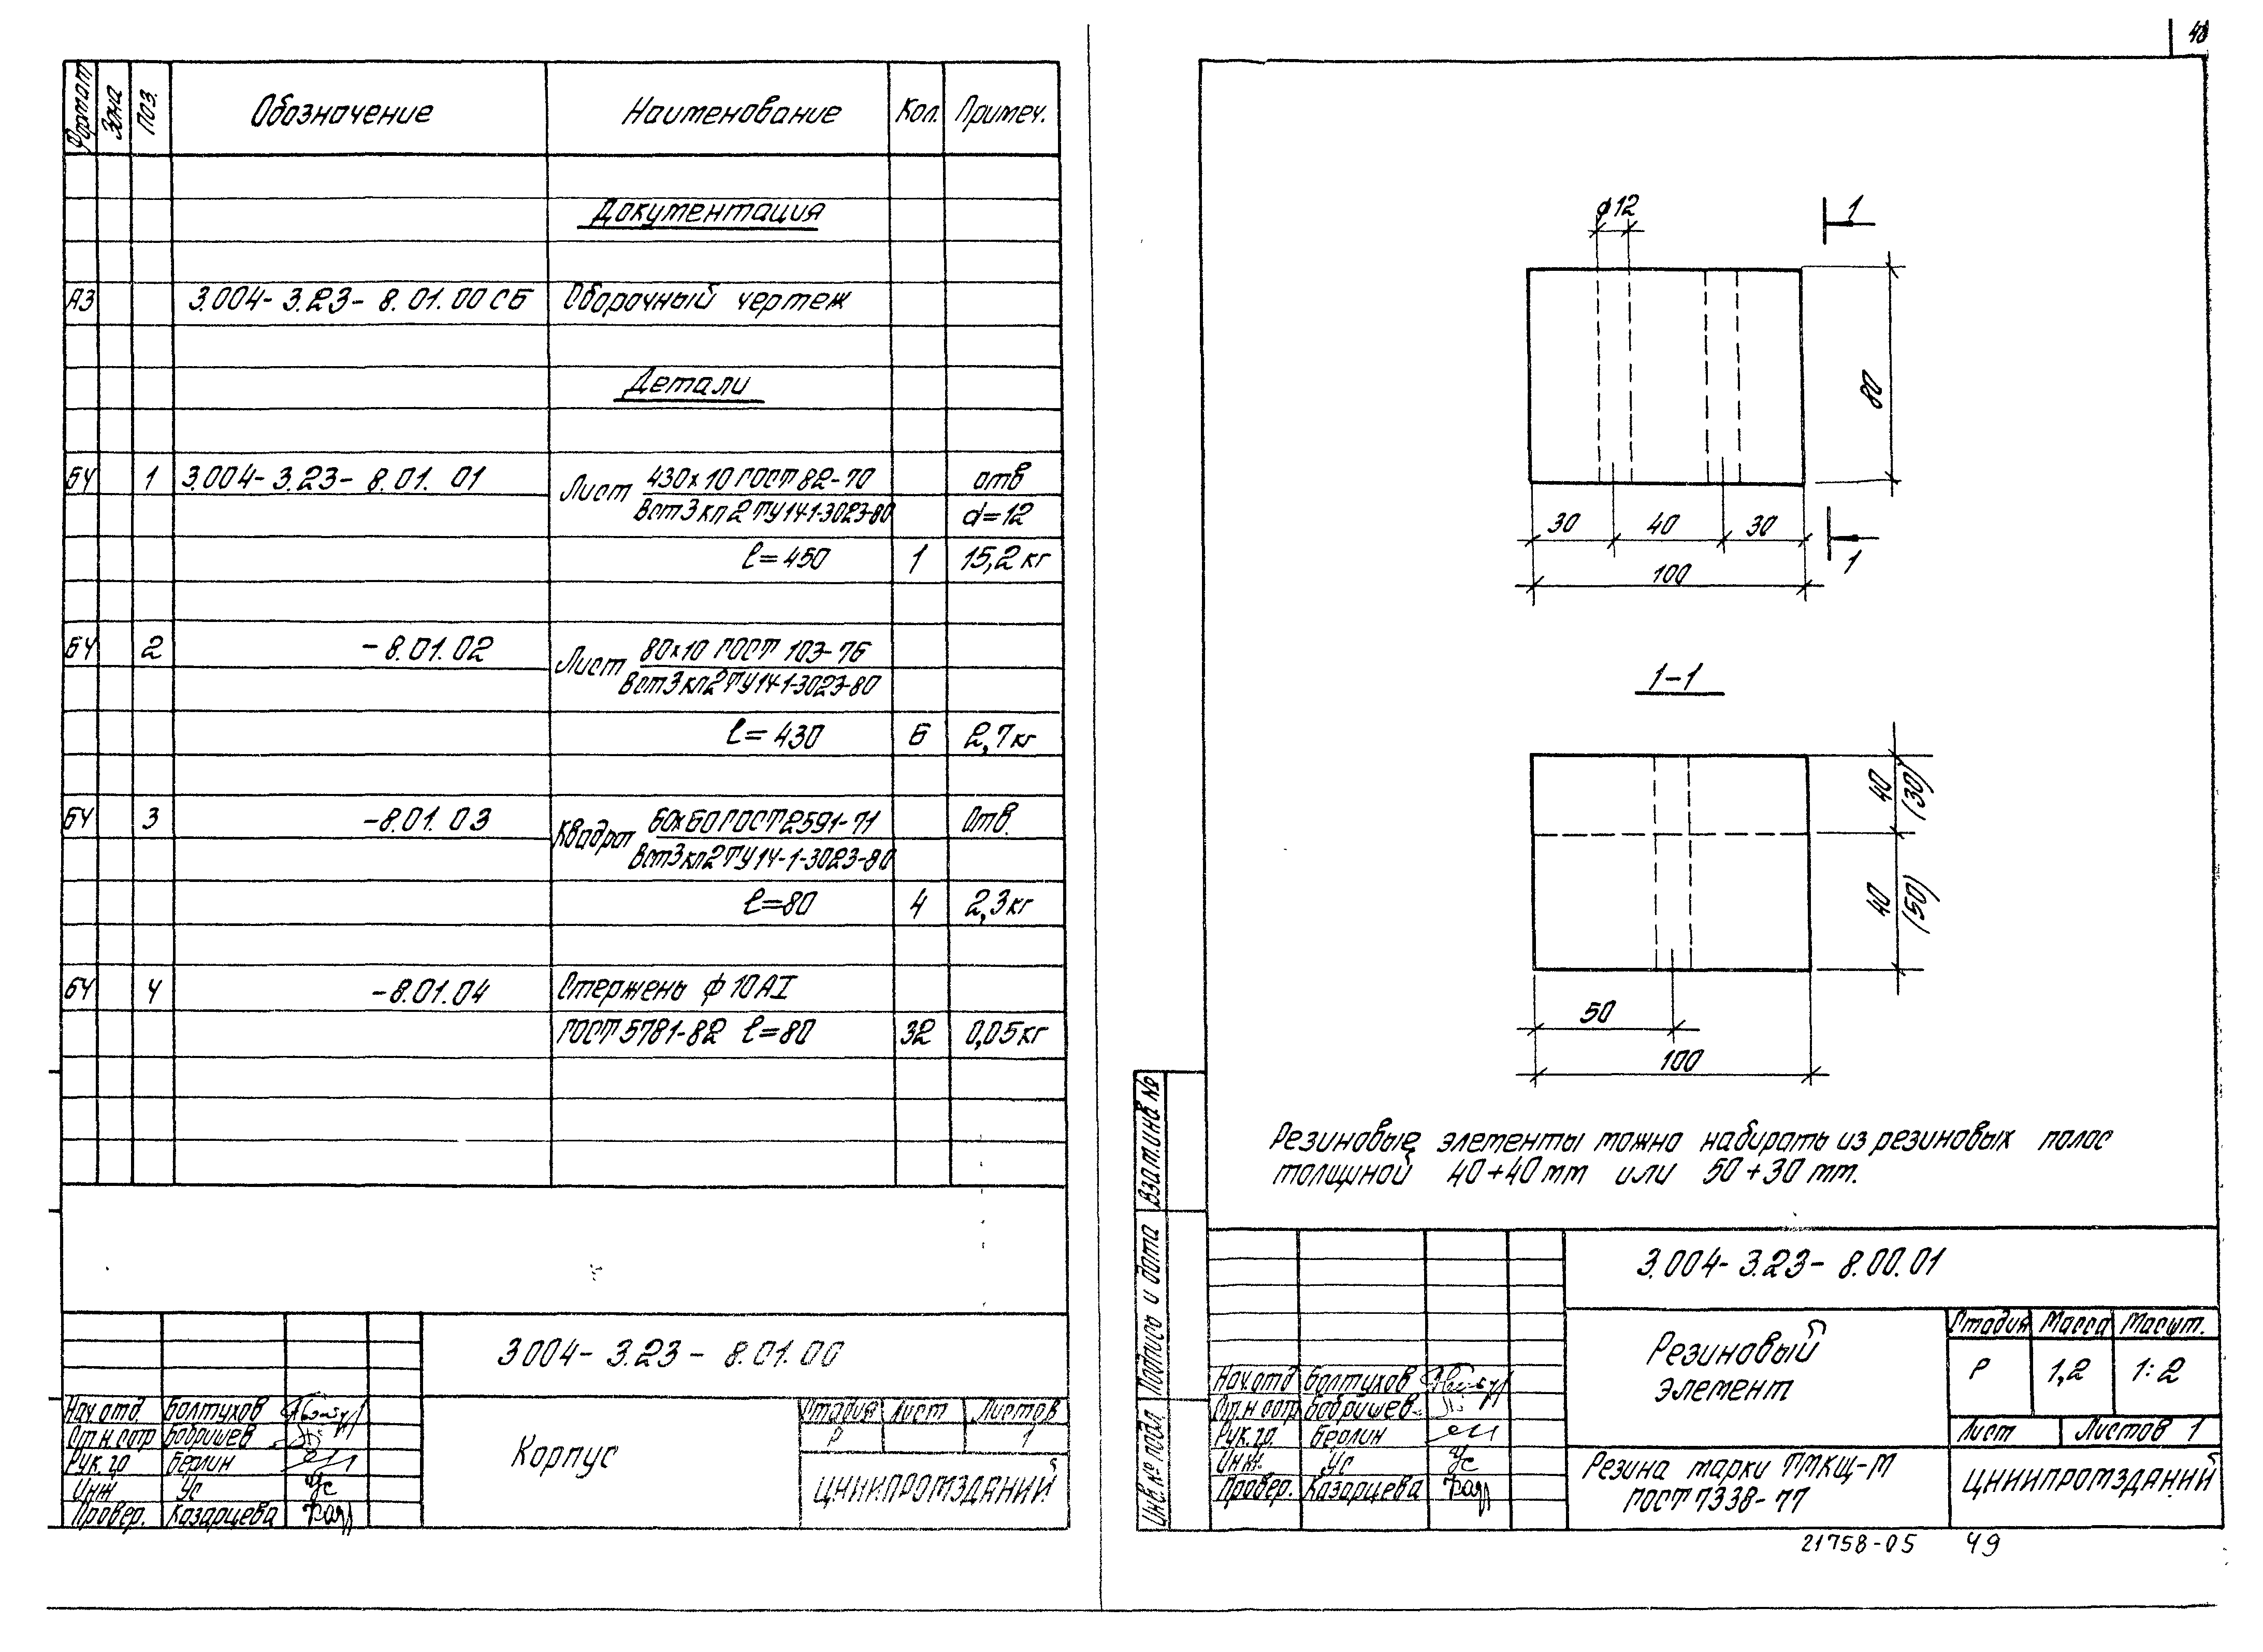 Формат Зона Поз. Обозначение Наименование Кол. Примеч.
Документация
А3 3.004-3.23-8.01.00СБ Сборочный чертеж
Детали
БЧ 1 3.004-3.23-8.01.01 Лист 430х10 ГОСТ 82-70 отв
Вст3кп2 ТУ14-1-3023-80 d=12
ℓ=450 1 15,2кг
БЧ 2 -8.01.02 Лист 80х10 ГОСТ 103-76
Вст3кп2ТУ14-1-3023-80
ℓ=430 6 2,7кг
БЧ 3 -8.01.03 Квадрат 60х60 ГОСТ2591-71 Отв.
Вст3кп2ТУ14-1-3023-80
ℓ=80 4 2,3кг
БЧ 4 -8.01.04 Стержень ф10АI
ГОСТ5781-82 ℓ=80 32 0,05кг
3004-3.23-8.01.00
Нач.отд. Болтухов
Ст.н.сотр Бобришев
Рук.гр Берлин
Инж Ус
Провер. Казарцева
Корпус
Стадия Лист Листов
Р 1
ЦНИИПРОМЗДАНИЙ
48
ф12
1
80
30 40 30
1
100
1-1
40
(30)
40
(50)
50
100
Резиновые элементы можно набирать из резиновых полос
толщиной 40+40мм или 50+30мм.
Взам.инв№
Подпись и дата
Инв.№ подл.
3.004-3.23-8.00.01
Нач.отд Болтухов
Ст.н.сотр Бобришев
Рук.гр. Берлин
Инж. Ус
Провер. Казарцева
Резиновый
элемент
Стадия Масса Масшт.
Р 1,2 1:2
Лист Листов 1
Резина марки ТМКЩ-М
ГОСТ 7338-77
ЦНИИПРОМЗДАНИЙ
21758-05 49